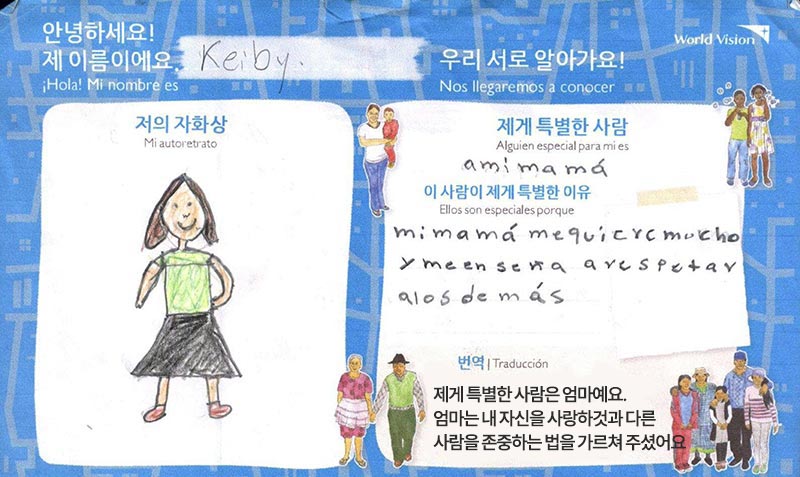 안녕하세요!
제 이름이에요. Keiby.
¡Hola! Mi nombre es
우리 서로 알아가요!
Nos llegaremos a conocer
World Vision
저의 자화상
Mi autoretrato
제게 특별한 사람
Alguien especial para mi es
a mi mamá
이 사람이 제게 특별한 이유
Ellos son especiales porque
mi mamá me quiere mucho
y me enseña a respetar
a los demás
번역 | Traducción
제게 특별한 사람은 엄마예요.
엄마는 내 자신을 사랑하것과 다른
사람을 존중하는 법을 가르쳐 주셨어요